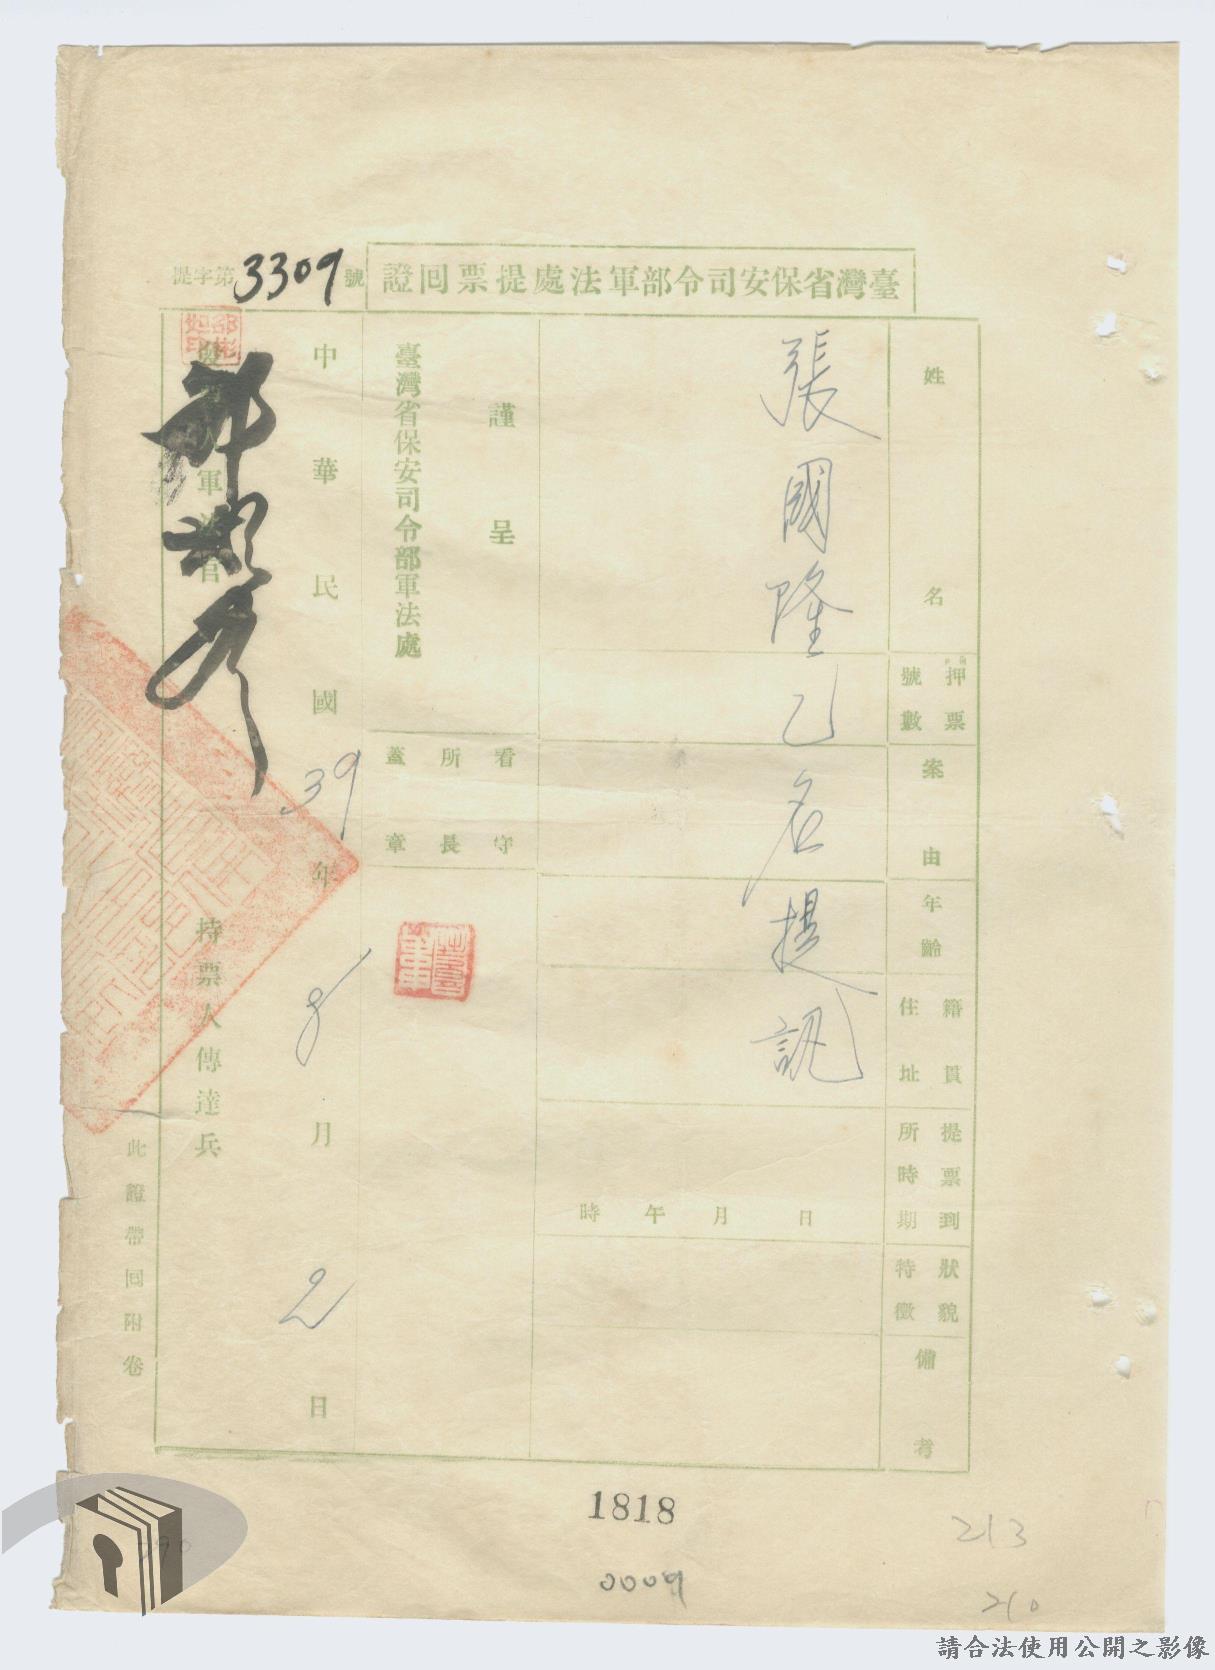 臺灣省保安司令部軍法處提票回證
提字第3309號
姓名
張國隆乙名提訊
押票號數
案由
年齡
籍貫住址
提票到所時期
日 月 午 時
狀貌特徵
備考
謹呈
臺灣省保安司令部軍法處
看守所長蓋章
中華民國39年8月2日
軍法官
持票人傳達兵
此證帶回附卷
1818
0009
213
210
290
請合法使用公開之影像